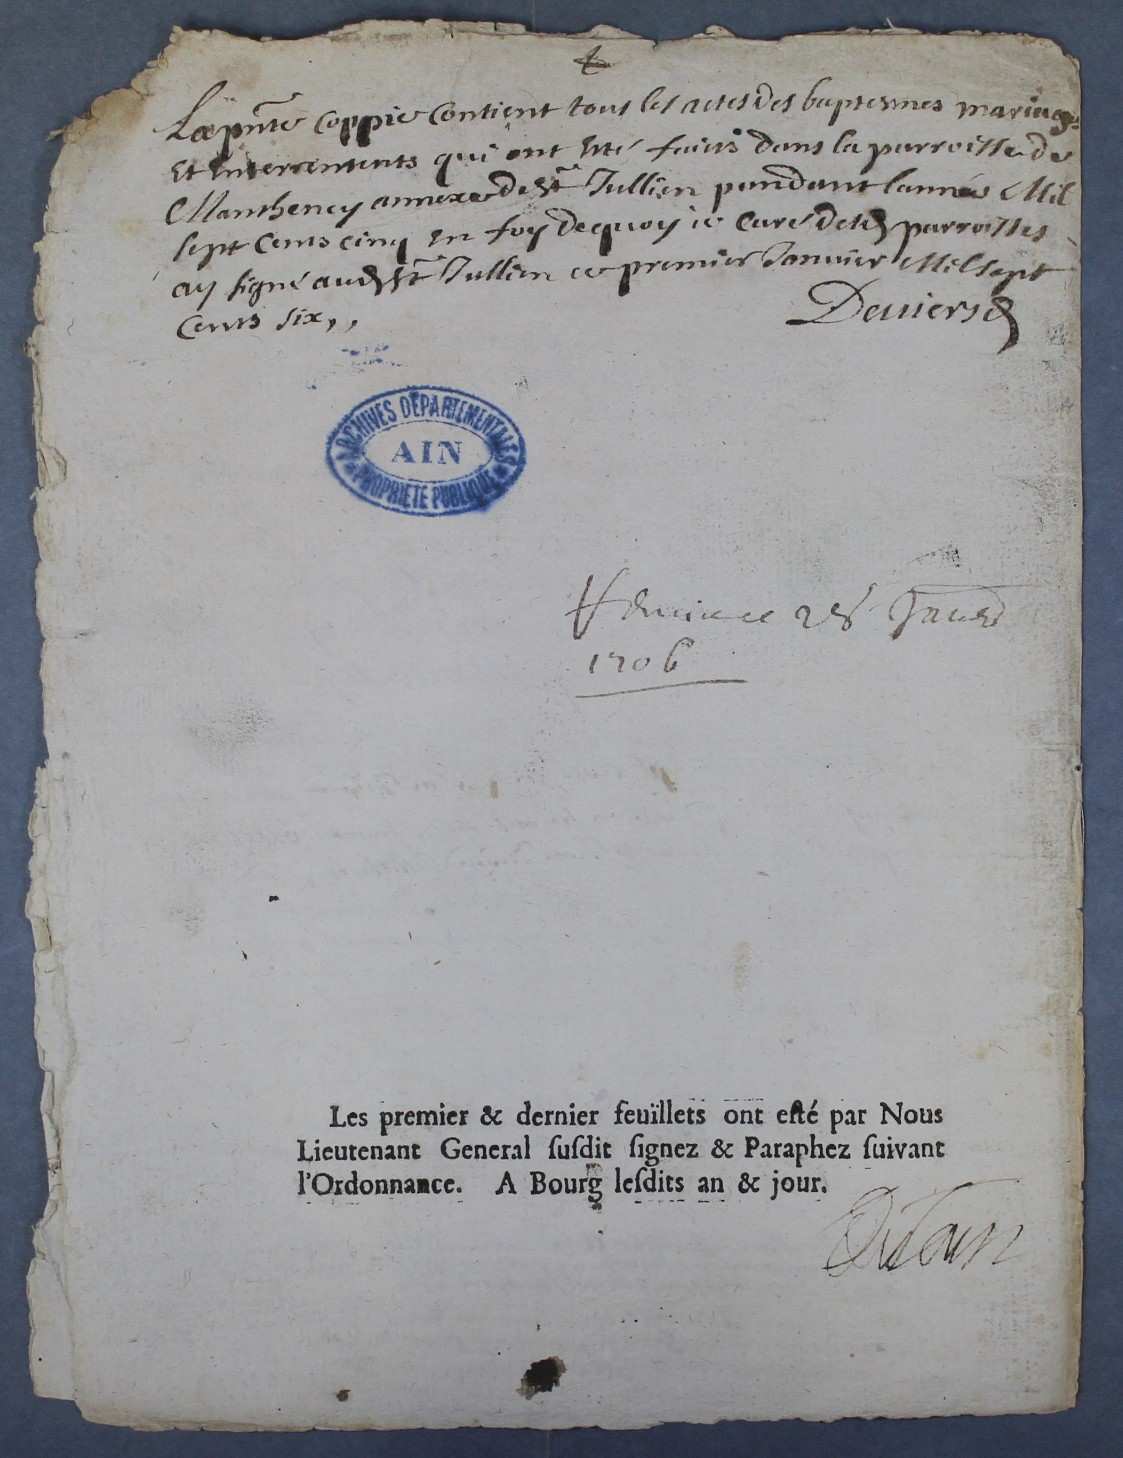 La pnte coppie contient tous les actes des baptesmes mariages
et enterrements qui ont esté faicts dans la parroisse de
Mantheney annexe de St Jullien pendant lannée Mil
sept cents cinq en foy dequoy ie curé desd parroisses
ay signé aud St Jullien ce premier Janvier Mil sept
cents six,,
Deuiersd
ARCHIVES DÉPARTEMENTALES
AIN
PROPRIÉTÉ PUBLIQUE
28 Janer
1706
Les premier & dernier feuïllets ont esté par Nous
Lieutenant General susdit signez & Paraphez suivant
l'Ordonnance. A Bourg lesdits an & jour.